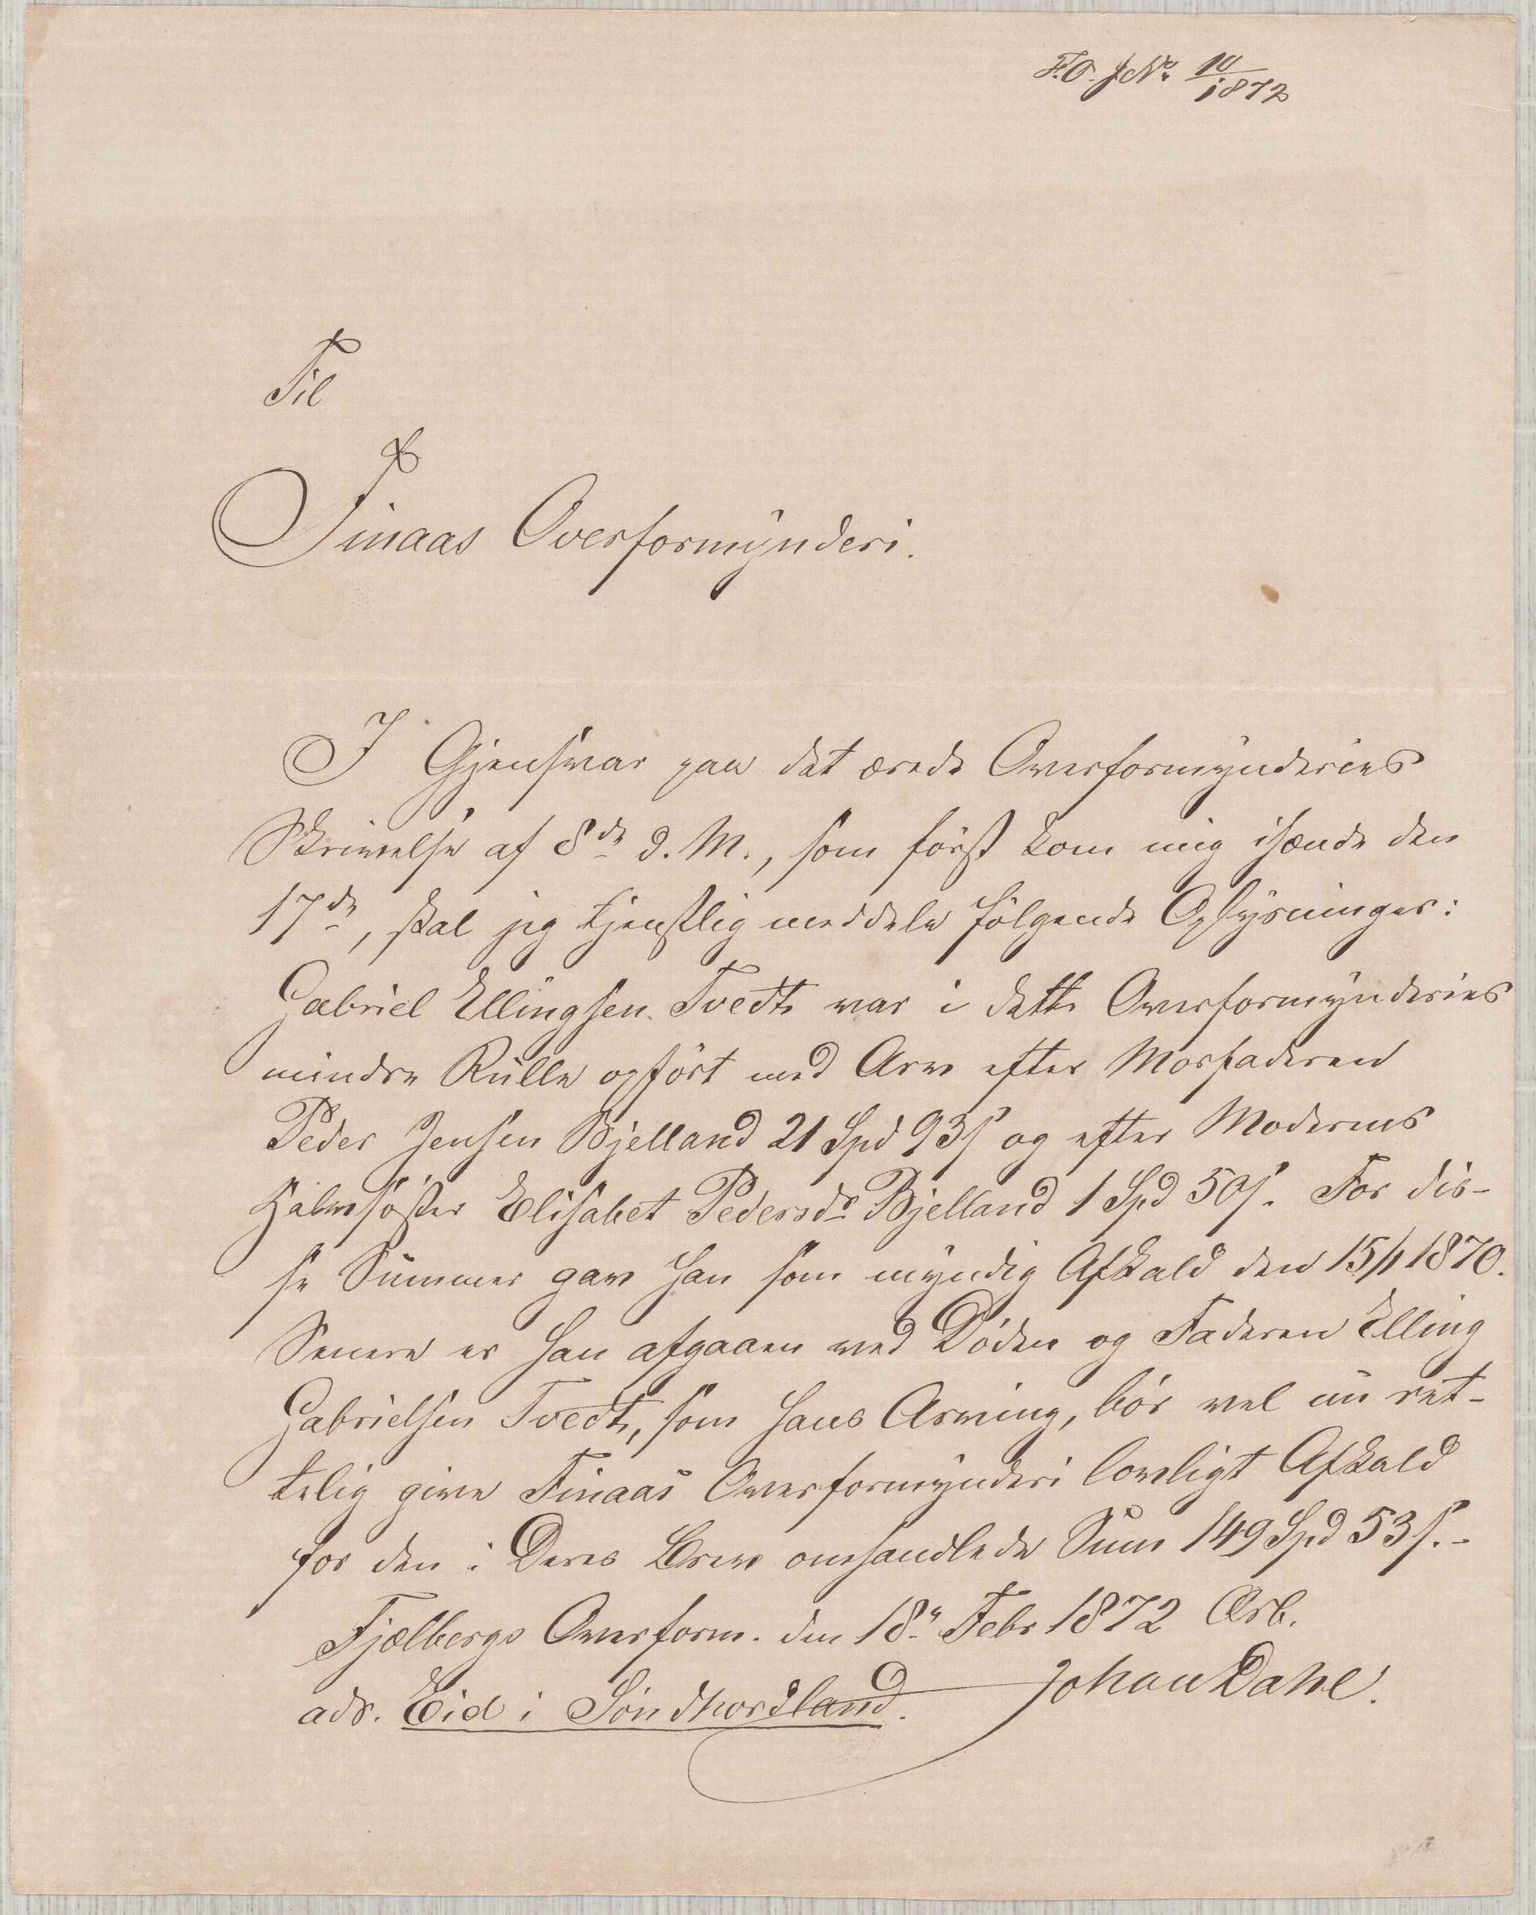 F.O. J.No 10/1872
Til
Finaas Overformynderi.
I Gjensvar paa det ærede Overformynderies
Skrivelse af 8de d. M., som först kom mig ihænde den
17de, skal jeg tjenstlig meddele fölgende Oplysninger:
Gabriel Ellingsen Tvedte var i dette Overformynderies
mindre Rulle opfört med Arv efter Morfaderen
Peder Jensen Bjelland 21 Spd 93 s og efter Moderens
Halvsöster Elisabet Pedersdr Bjelland 1 Spd 50 s. For dis-
se Summer gav han som myndig Afkald den 15/11 1870.
Senere er han afgaaen ved Döden og Faderen Elling
Gabrielsen Tvedte, som hans Arving, bör vel nu ret-
telig give Finaas Overformynderi lovligt Afkald
for den i Deres Brev omhandlede Sum 149 Spd 53 s. -
Fjelbergs Overform. den 18de Febr 1872 Ærb.
adr. Eid i Söndhordland. Johan Dahl.